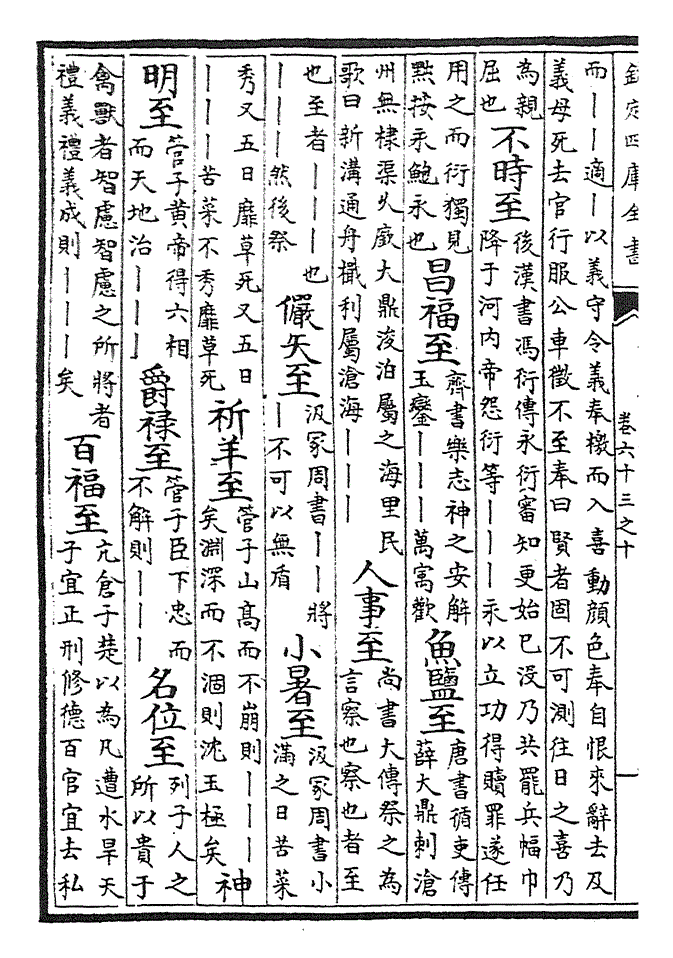 欽定四庫全書 卷六十三之十 一
而丨丨適丨以義守令義奉檄而入喜動顔色奉自恨來辭去及
義母死去官行服公車徵不至奉曰賢者固不可測往日之喜乃
為親
屈也
不時至
後漢書馮衍傳永衍審知更始已没乃共罷兵幅巾
降于河内帝怨衍等丨丨丨永以立功得贖罪遂任
用之而衍獨見
黜按永鮑永也
昌福至
齊書樂志神之安解
玉鑾丨丨丨萬寓歡
魚鹽至
唐書循吏傳
薛大鼎刺滄
州無棣渠久廞大鼎浚泊屬之海里民
歌曰新溝通舟檝利屬滄海丨丨丨
人事至
尚書大傳祭之為
言察也察也者至
也至者丨丨丨丨也
丨丨丨然後祭
儼矢至
汲冢周書丨丨將
丨不可以無盾
小暑至
汲冢周書小
滿之日苦菜
秀又五日靡草死又五日
丨丨丨苦菜不秀靡草死
祈羊至
管子山髙而不崩則丨丨丨
矣淵深而不涸則沈玉極矣
神
明至
管子黄帝得六相
而天地治丨丨丨
爵禄至
管子臣下忠而
不解則丨丨丨
名位至
列子人之
所以貴于
禽獸者智慮智慮之所將者
禮義禮義成則丨丨丨矣
百福至
亢倉子楚以為凡遭水旱天
子宜正刑修德百官宜去私